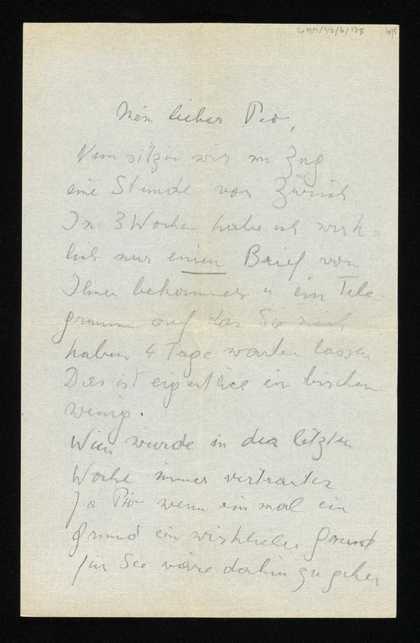 Mein lieber Pio,
Nun sitzen wir im Zug
eine Stunde vor Zürich
In 3 Wochen habe ich wirk-
lich nur einen Brief von
Ihnen bekommen u ein Tele-
gramm auf das Sie mich
haben 4 Tage warten lassen
Dies ist eigentlich ein bischen
wenig.
Wien wurde in der letzten
Woche immer vertrauter
Ja Pio wenn einmal ein
Grund ein wirklicher Grund
für Sie wäre dorthin zu gehen